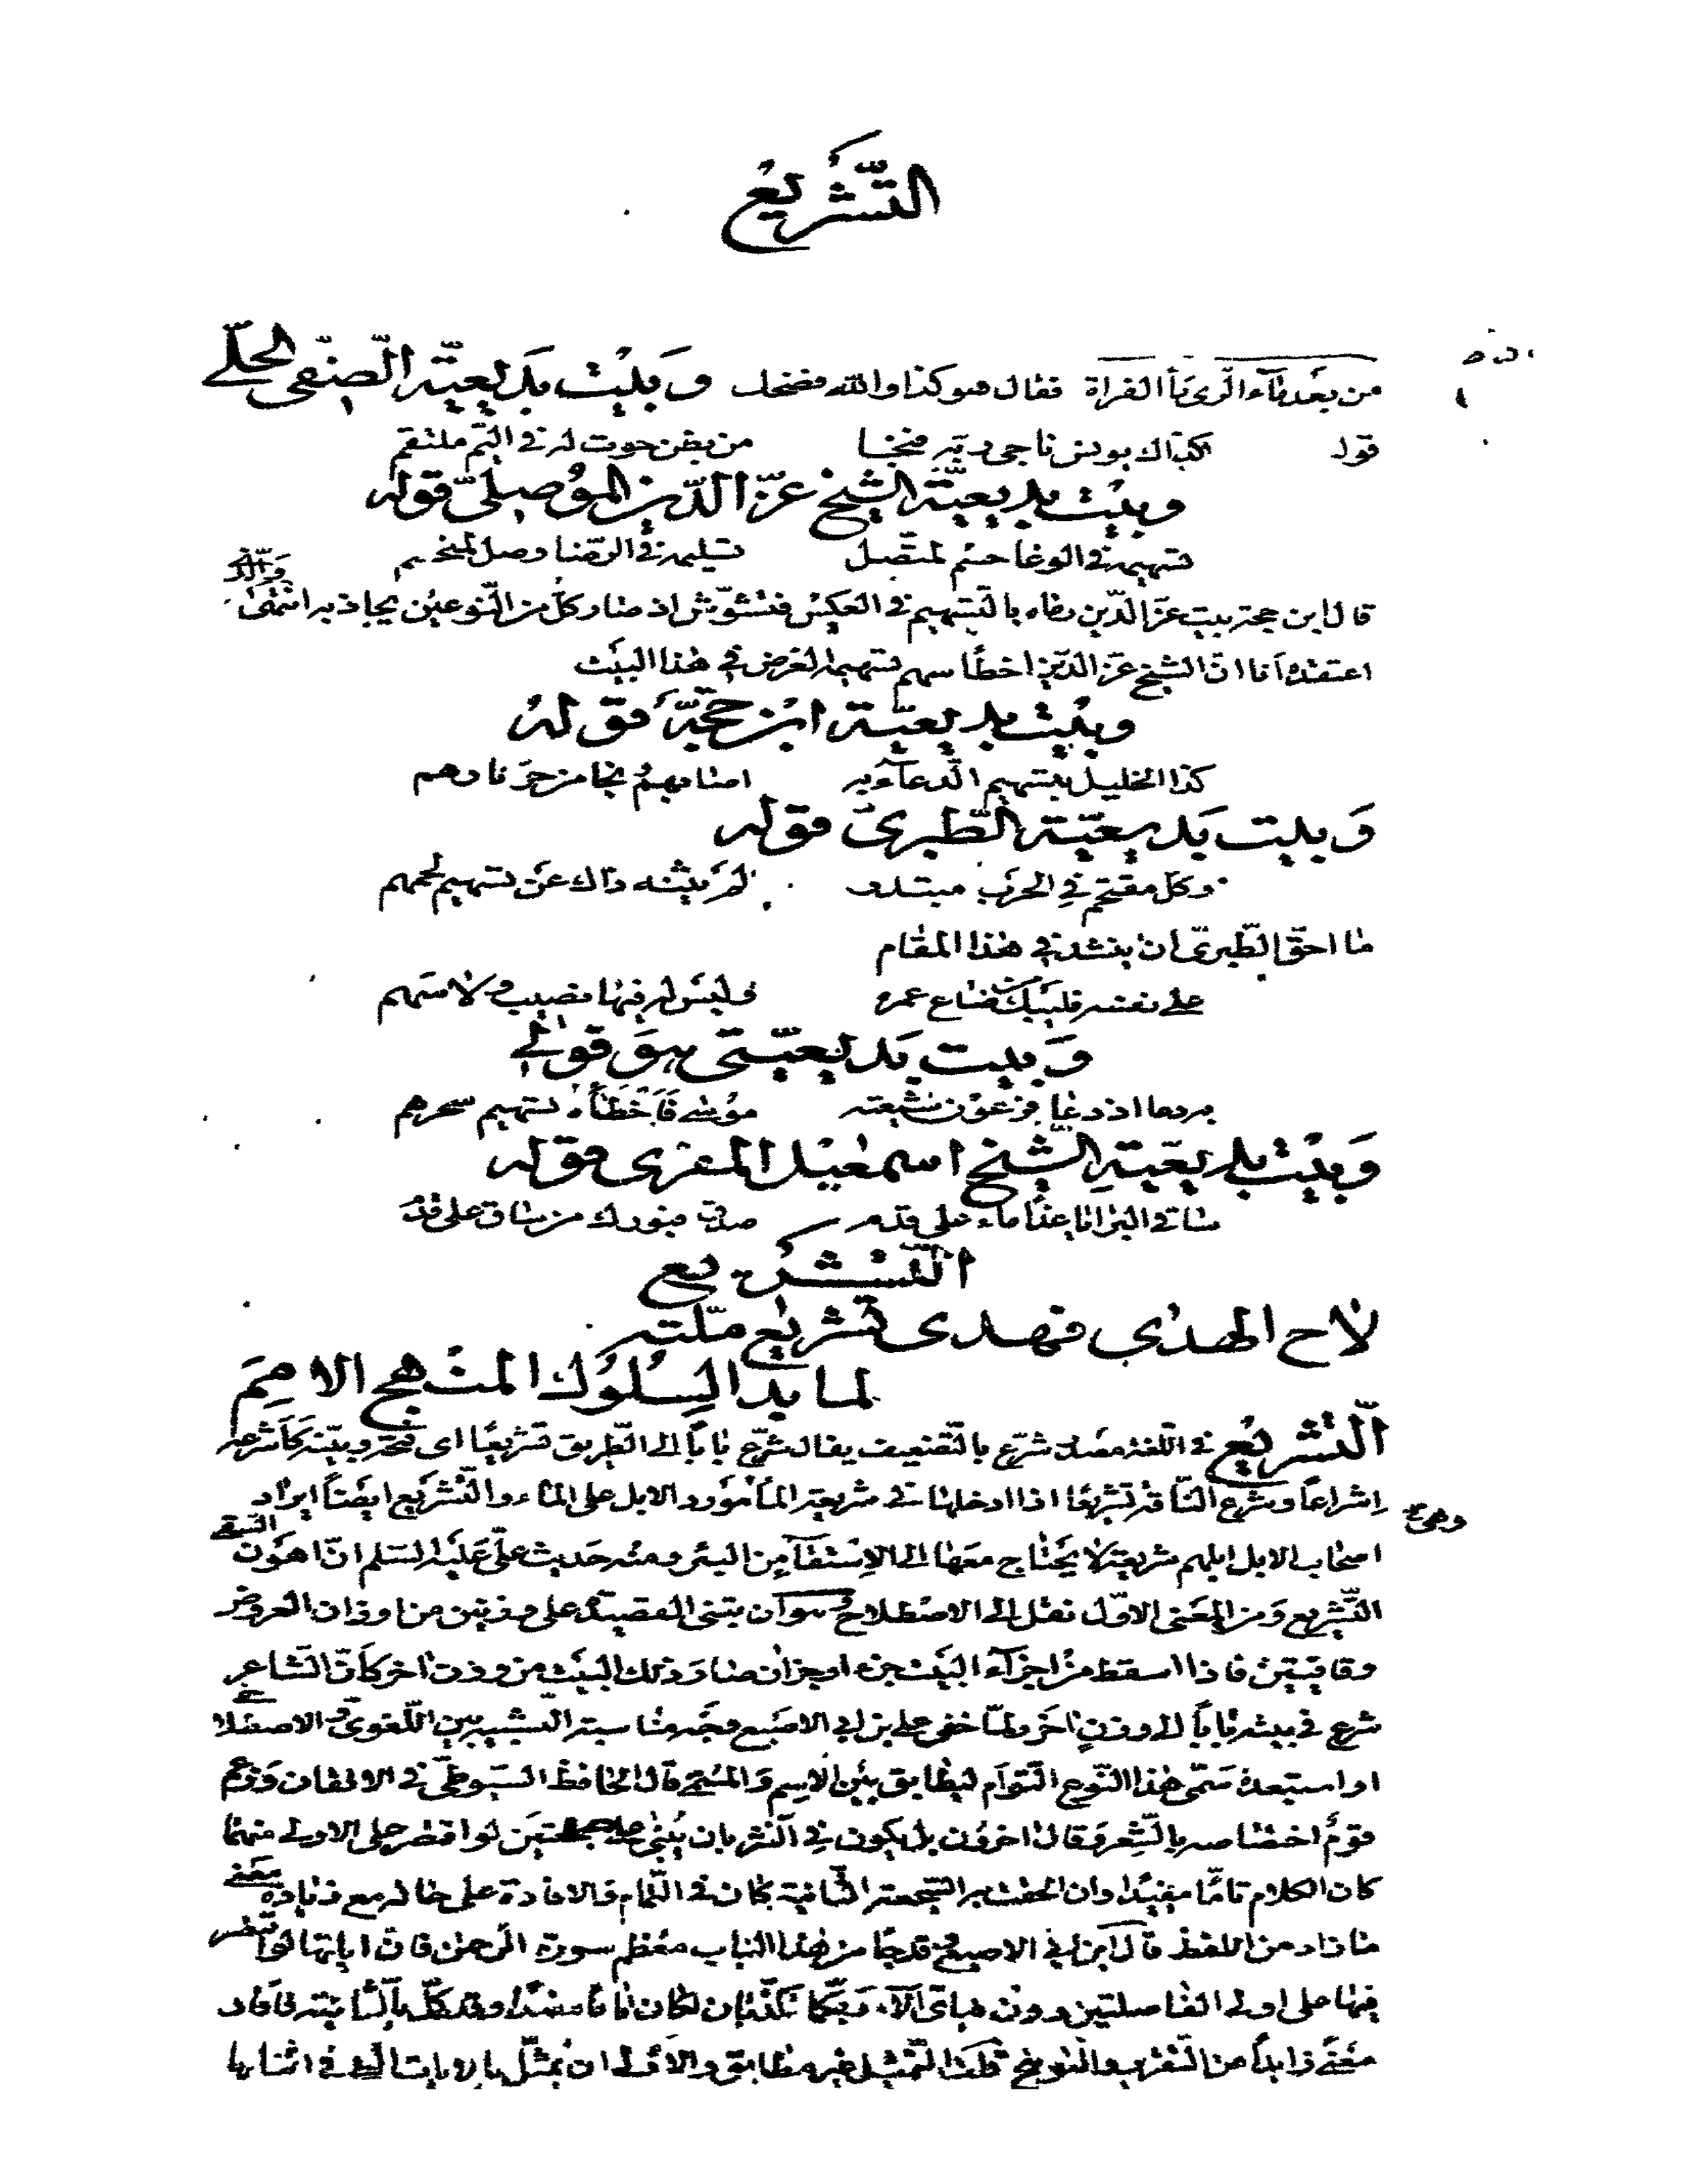 التَّشْرِيع
من بعد ماء الرى ماء الفراة فقال هو كذا والله فضحك وَبَيْت بَديعيّة الصّفى الحلّى
قوله كذاك يونس ناجى ربّه فنجا من بطن حوت له فى اليم ملتقم
وبيت بديعيّة الشيخ عزّ الدّين الموصلىّ قوله
تسهيمه فى الوغا حسم لمتّصل تسليمه فى الرّضا وصل لمنحسم
قال ابن حجة بيت عزّ الدّين رماه بالتّسهيم فى العكس فتشوّش اذ صار كلّ من النّوعين يجاذبه انتهى والّذى
اعتقده أنا انّ الشيخ عزّ الدّين اخطأ سهم تسهيمه الغرض فى هذا البيت
وبيت بديعيّة ابن حجّة قوله
كذا الخليل بتسهيم الدّعاء به اصابهم ونجا من حرّ نارهم
وبيت بديعيّة الطّبرىّ قوله
وكلّ مقتحم فى الحرب مبتدر لم يثنه ذاك عن تسهيم لحمهم
ما احقّ الطّبرىّ ان ينشد فى هذا المقام
على نفسه فليبك من ضاع عمره وليس له فيها نصيب ولا سهم
وَبيت بَديعيّتى هو قولى
اذ دعا فرعون شيعته موسى فأخطأه تسهيم سحرهم
وَبيت بديعيّة الشّيخ اسمعيل المقرى قوله
على قدم من ساق على قدم
التّشريع
لاح الهدى فهدى تشريع ملّته
لما بدا السلوك المنهج الامم
التّشريع فى اللّغة مصدر شرّع بالتّضعيف يقال شرّع بابا الى الطّريق تشريعًا اى فتحه وبيّنه كأشرعه
اشراعًا وشرع النّاقة تشريعًا اذا ادخلها فى شريعة الماء وهى مورد الابل على الماء والتّشريع ايضًا ايراد
اصحاب الابل ابلهم شريعة لا يحتاج معها الى الاستقاء من البئر ومنه حديث علىّ عليه السّلم انّ اهون السّقى
التّشريع ومن المعنى الاوّل نقل الى الاصطلاح وهو أن يبنى القصيدة على وزنين من اوزان العروض
وقافيتين فاذا اسقط من اجزاء البيت جزء او جزآن صار ذلك البيت من وزن اخر كأنّ الشّاعر
شرع فى بيته بابًا الى وزنٍ اخر ولمّا خفى على بن ابى الاصبع وجه مناسبة التّشبيه بين اللّغوىّ والاصطلاحى
او استبعده سمّى هذا النّوع التّوأم ليطابق بين الاسم والمسمّى قال الحافظ السّيوطىّ فى الاتقان وزعم
قومٌ اختصاصه بالشّعر وقال اخرون بل يكون فى النّثر بان يُبنى على سجعتين لو اقتصر على الاولى منهما
كان الكلام تامًّا مفيدًا وان الحقت به السّجعة الثّانية كان فى التّمام والافادة على حاله مع زيادة معنى
ما زاد من اللفظ قال ابن ابى الاصبع وقد جاء من هذا الباب معظم سورة الرّحمن فانّ اياتها لو اقتصر
فيها على اولى الفاصلتين دون فبأىّ آلاء ربّكما تكذّبان لكان تامًّا مفيدًا وقد كمّل بالثّانية فافاد
معنىً زايدًا من التّقرير والتّوبيخ قلت التّمثيل غير مطابق والاولى ان يُمثّل بالايات الّتى فى اثنايها